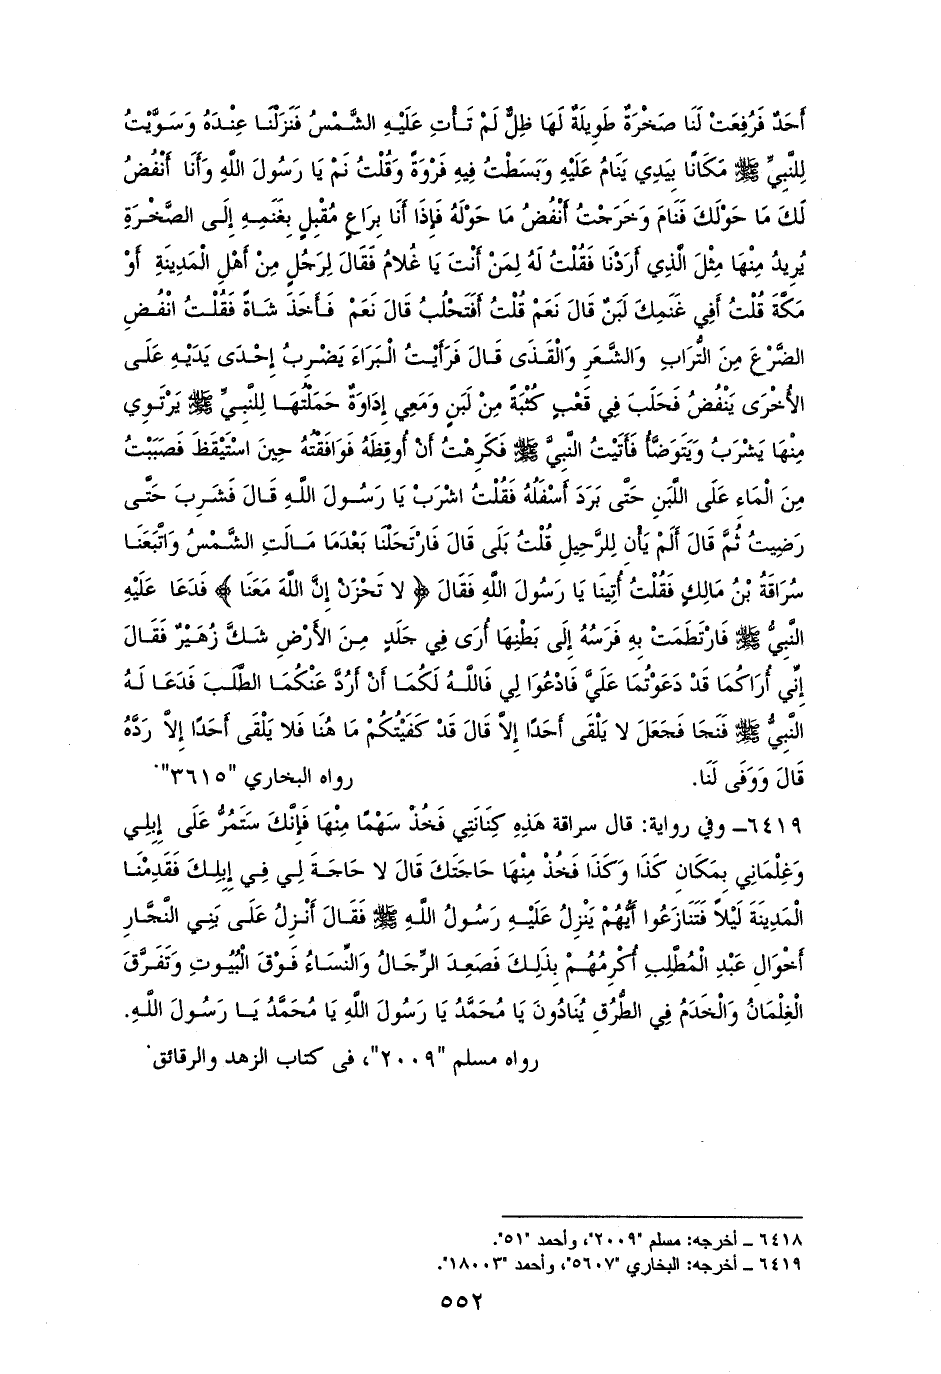 أَحَدٌ فَرُفِعَتْ لَنَا صَخْرَةٌ طَوِيلَةٌ لَهَا ظِلٌّ لَمْ تَأْتِ عَلَيْهِ الشَّمْسُ فَنَزَلْنَا عِنْدَهُ وَسَوَّيْتُ
لِلنَّبِيِّ ﷺ مَكَانًا بِيَدِي يَنَامُ عَلَيْهِ وَبَسَطْتُ فِيهِ فَرْوَةً وَقُلْتُ نَمْ يَا رَسُولَ اللَّهِ وَأَنَا أَنْفُضُ
لَكَ مَا حَوْلَكَ فَنَامَ وَخَرَجْتُ أَنْفُضُ مَا حَوْلَهُ فَإِذَا أَنَا بِرَاعٍ مُقْبِلٍ بِغَنَمِهِ إِلَى الصَّخْرَةِ
يُرِيدُ مِنْهَا مِثْلَ الَّذِي أَرَدْنَا فَقُلْتُ لَهُ لِمَنْ أَنْتَ يَا غُلَامُ فَقَالَ لِرَجُلٍ مِنْ أَهْلِ الْمَدِينَةِ أَوْ
مَكَّةَ قُلْتُ أَفِي غَنَمِكَ لَبَنٌ قَالَ نَعَمْ قُلْتُ أَفَتَحْلُبُ قَالَ نَعَمْ فَأَخَذَ شَاةً فَقُلْتُ انْفُضِ
الضَّرْعَ مِنَ التُّرَابِ وَالشَّعَرِ وَالْقَذَى قَالَ فَرَأَيْتُ الْبَرَاءَ يَضْرِبُ إِحْدَى يَدَيْهِ عَلَى
الأُخْرَى يَنْفُضُ فَحَلَبَ فِي قَعْبٍ كُثْبَةً مِنْ لَبَنٍ وَمَعِي إِدَاوَةٌ حَمَلْتُهَا لِلنَّبِيِّ ﷺ يَرْتَوِي
مِنْهَا يَشْرَبُ وَيَتَوَضَّأُ فَأَتَيْتُ النَّبِيَّ ﷺ فَكَرِهْتُ أَنْ أُوقِظَهُ فَوَافَقْتُهُ حِينَ اسْتَيْقَظَ فَصَبَبْتُ
مِنَ الْمَاءِ عَلَى اللَّبَنِ حَتَّى بَرَدَ أَسْفَلُهُ فَقُلْتُ اشْرَبْ يَا رَسُولَ اللَّهِ قَالَ فَشَرِبَ حَتَّى
رَضِيتُ ثُمَّ قَالَ أَلَمْ يَأْنِ لِلرَّحِيلِ قُلْتُ بَلَى قَالَ فَارْتَحَلْنَا بَعْدَمَا مَالَتِ الشَّمْسُ وَاتَّبَعَنَا
سُرَاقَةُ بْنُ مَالِكٍ فَقُلْتُ أُتِينَا يَا رَسُولَ اللَّهِ فَقَالَ ﴿ لا تَحْزَنْ إِنَّ اللَّهَ مَعَنَا ﴾ فَدَعَا عَلَيْهِ
النَّبِيُّ ﷺ فَارْتَطَمَتْ بِهِ فَرَسُهُ إِلَى بَطْنِهَا أُرَى فِي جَلَدٍ مِنَ الأَرْضِ شَكَّ زُهَيْرٌ فَقَالَ
إِنِّي أُرَاكُمَا قَدْ دَعَوْتُمَا عَلَيَّ فَادْعُوَا لِي فَاللَّهُ لَكُمَا أَنْ أَرُدَّ عَنْكُمَا الطَّلَبَ فَدَعَا لَهُ
النَّبِيُّ ﷺ فَنَجَا فَجَعَلَ لا يَلْقَى أَحَدًا إِلاَّ قَالَ قَدْ كَفَيْتُكُمْ مَا هُنَا فَلا يَلْقَى أَحَدًا إِلاَّ رَدَّهُ
قَالَ وَوَفَى لَنَا. رواه البخاري "٣٦١٥".
٦٤١٩ـ وفي رواية: قال سراقة هَذِهِ كِنَانَتِي فَخُذْ سَهْمًا مِنْهَا فَإِنَّكَ سَتَمُرُّ عَلَى إِبِلِي
وَغِلْمَانِي بِمَكَانِ كَذَا وَكَذَا فَخُذْ مِنْهَا حَاجَتَكَ قَالَ لا حَاجَةَ لِي فِي إِبِلِكَ فَقَدِمْنَا
الْمَدِينَةَ لَيْلاً فَتَنَازَعُوا أَيُّهُمْ يَنْزِلُ عَلَيْهِ رَسُولُ اللَّهِ ﷺ فَقَالَ أَنْزِلُ عَلَى بَنِي النَّجَّارِ
أَخْوَالِ عَبْدِ الْمُطَّلِبِ أُكْرِمُهُمْ بِذَلِكَ فَصَعِدَ الرِّجَالُ وَالنِّسَاءُ فَوْقَ الْبُيُوتِ وَتَفَرَّقَ
الْغِلْمَانُ وَالْخَدَمُ فِي الطُّرُقِ يُنَادُونَ يَا مُحَمَّدُ يَا رَسُولَ اللَّهِ يَا مُحَمَّدُ يَا رَسُولَ اللَّهِ.
رواه مسلم "٢٠٠٩"، فى كتاب الزهد والرقائق.
٦٤١٨ ـ أخرجه: مسلم "٢٠٠٩"، وأحمد "٥١".
٦٤١٩ ـ أخرجه: البخاري "٥٦٠٧"، وأحمد "١٨٠٠٣".
٥٥٢